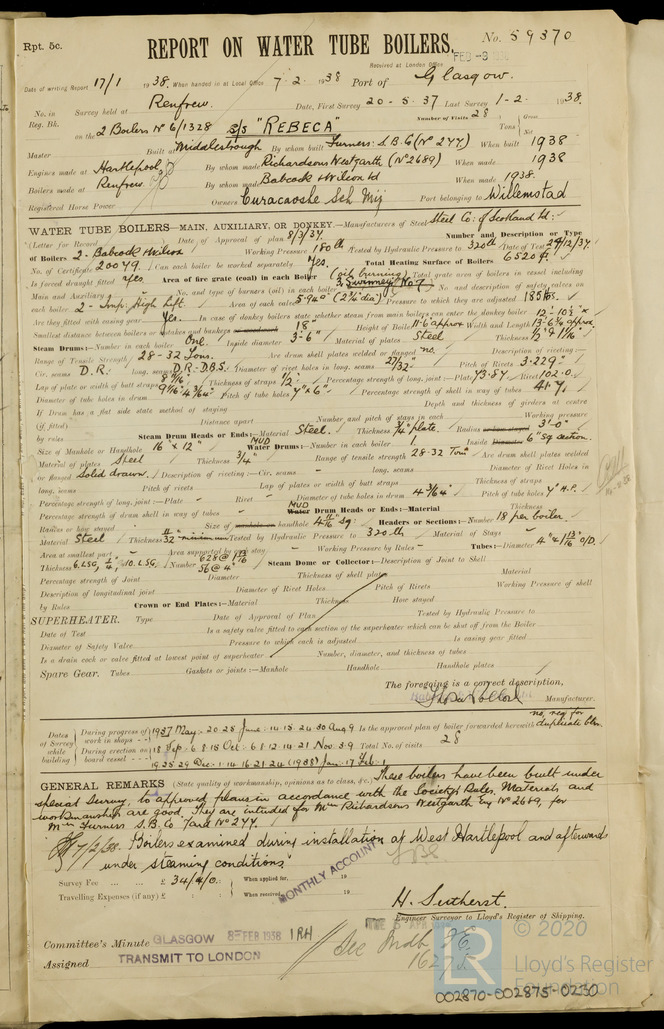 Rpt. 5c.
REPORT ON WATER TUBE BOILERS.
No. 59370
Received at London Office FEB -9 1938
Date of writing Report 17/1 1938. When handed in at Local Office 7.2.1938 Port of Glasgow.
No. in Survey held at Renfrew. Date, First Survey 20-5-37 Last Survey 1-2-1938.
Reg. Bk. Number of Visits 28
on the 2 Boilers No 6/1328 s/s "REBECA" Tons Gross Net
Master Built at Middlesbrough By whom built Furness S.B.Co (No 277) When built 1938
Engines made at Hartlepool By whom made Richardsons Westgarth (No 2689) When made 1938
Boilers made at Renfrew By whom made Babcock & Wilcox Ld When made 1938.
Registered Horse Power Owners Curacaoshe Sch Mij Port belonging to Willemstad
WATER TUBE BOILERS—MAIN, AUXILIARY, OR DONKEY.—Manufacturers of Steel Steel Co: of Scotland Ld:
(Letter for Record Date of Approval of plan 8/3/37 Number and Description or Type
of Boilers 2. Babcock & Wilcox Working Pressure 180 lb Tested by Hydraulic Pressure to 320 lb Date of Test 29/12/37.
No. of Certificate 20049. Can each boiler be worked separately Yes. Total Heating Surface of Boilers 6520 ft.
Is forced draught fitted yes Area of fire grate (coal) in each Boiler (oil burning) Total grate area of boilers in vessel including
Main and Auxiliary No. and type of burners (oil) in each boiler No. and description of safety valves on
each boiler 2 - Imp. High Lift Area of each valve 5.940 (2¾ dia) Pressure to which they are adjusted 185 lbs.
Are they fitted with easing gear Yes. In case of donkey boilers state whether steam from main boilers can enter the donkey boiler
Smallest distance between boilers or uptakes and bunkers or woodwork 18" Height of Boiler 11-6 approx Width and Length
Steam Drums:—Number in each boiler One. Inside diameter 3'-6" Material of plates Steel Thickness
Range of Tensile Strength 28-32 Tons. Are drum shell plates welded or flanged no. Description of riveting:—
Cir. seams D.R. long. seams D.R.-D.B.S. Diameter of rivet holes in long. seams 27/32" Pitch of Rivets 3.229"
Lap of plate or width of butt straps Thickness of straps ½" Percentage strength of long. joint:—Plate 73.87 Rivet 102.0
Diameter of tube holes in drum 4 3/64" Pitch of tube holes 7" x 6" Percentage strength of drum shell in way of tubes
If Drum has a flat side state method of staying Depth and thickness of girders at centre
(if fitted) Distance apart Number and pitch of stays in each Working pressure
by rules Steam Drum Heads or Ends:—Material Steel. Thickness ¾" plate. Radius or how stayed 3'-0"
Size of Manhole or Handhole 16" x 12" MUD Water Drums:—Number in each boiler 1. Inside Diameter 6" Sq section.
Material of plates Steel Thickness ¾" Range of tensile strength 28-32 Tons Are drum shell plates welded
or flanged Solid drawn. Description of riveting:—Cir. seams long. seams Diameter of Rivet Holes in
long. seams Pitch of rivets Lap of plates or width of butt straps Thickness of straps
Percentage strength of long. joint:—Plate Rivet Diameter of tube holes in drum 4 3/64" Pitch of tube holes 7" H.P.
Percentage strength of drum shell in way of tubes MUD Water Drum Heads or Ends:—Material Thickness
Radius or how stayed Size of manhole or handhole Headers or Sections:—Number 18 per boiler.
Material Steel Thickness 11/32" minimum Tested by Hydraulic Pressure to 320 lb Material of Stays
Area at smallest part Area supported by each stay Working Pressure by Rules Tubes:—Diameter 4" & 1 13/16" O/D.
Thickness 6.LSG, ¼", 10.LSG. Number 628 @ 1 13/16 56 @ 4" Steam Dome or Collector:—Description of Joint to Shell
Percentage strength of Joint Diameter Thickness of shell plates Material
Description of longitudinal joint Diameter of Rivet Holes Pitch of Rivets Working Pressure of shell
by Rules Crown or End Plates:—Material Thickness How stayed
SUPERHEATER. Type Date of Approval of Plan Tested by Hydraulic Pressure to
Date of Test Is a safety valve fitted to each section of the superheater which can be shut off from the Boiler
Diameter of Safety Valve Pressure to which each is adjusted Is easing gear fitted
Is a drain cock or valve fitted at lowest point of superheater Number, diameter, and thickness of tubes
Spare Gear. Tubes Gaskets or joints:—Manhole Handhole Handhole plates
The foregoing is a correct description,
Manufacturer.
Dates of Survey while building
During progress of work in shops -- 1937 May: 20-25 June: 14-15-24-30 Aug 9 Is the approved plan of boiler forwarded herewith no, req for duplicate blr.
During erection on board vessel --- 18 Sep: 6.8.15 Oct: 6.8.12.14.21 Nov: 3.9 Total No. of visits 28
19.25.29 Dec: 1.14.16.21.24 (1938) Jan: 17 Feb: 1
GENERAL REMARKS (State quality of workmanship, opinions as to class, &c. These boilers have been built under
special survey, to approved plans in accordance with the Society's Rules. Materials and
workmanship are good. They are intended for Mssrs Richardsons Westgarth Eng No 2689, for
Mssrs Furness S.B.Co Yard No 277.
7/2/38. Boilers examined during installation at West Hartlepool and afterwards
under steaming conditions
Survey Fee ... ... £ 34/4/0: When applied for, 19
Travelling Expenses (if any) £ : : When received, 19
MONTHLY ACCOUNT
H. Sutherst.
Engineer Surveyor to Lloyd's Register of Shipping.
Committee's Minute GLASGOW 8 - FEB 1938
Assigned TRANSMIT TO LONDON
TUE 5 APR 1938
© 2020
Lloyd's Register
Foundation
002870-002875-0230